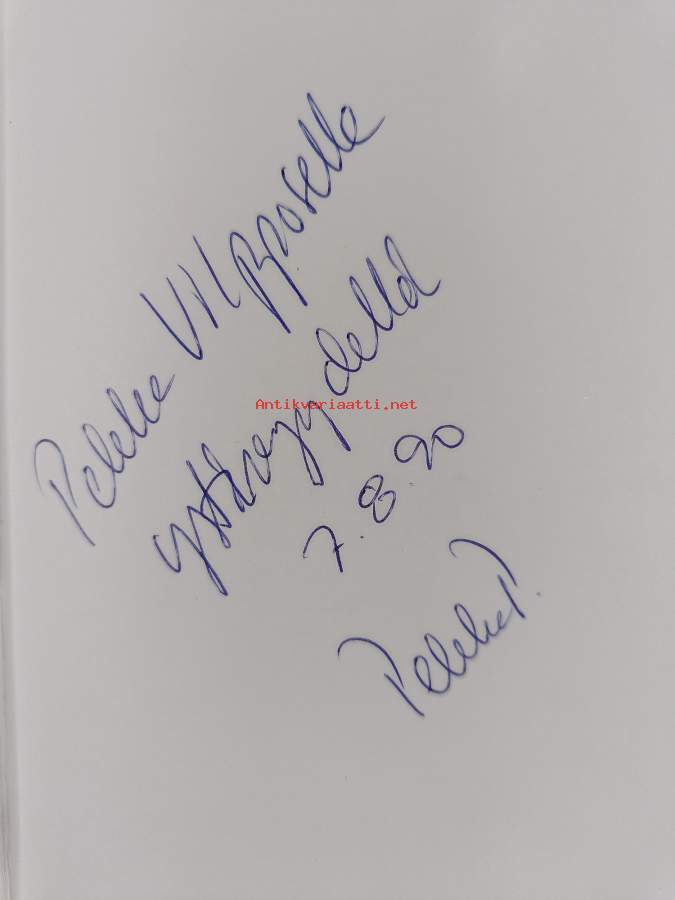 Pekka Vilpposelle
ystävyydellä
Antikvariaatti.net
7.8.90
Pekka P.